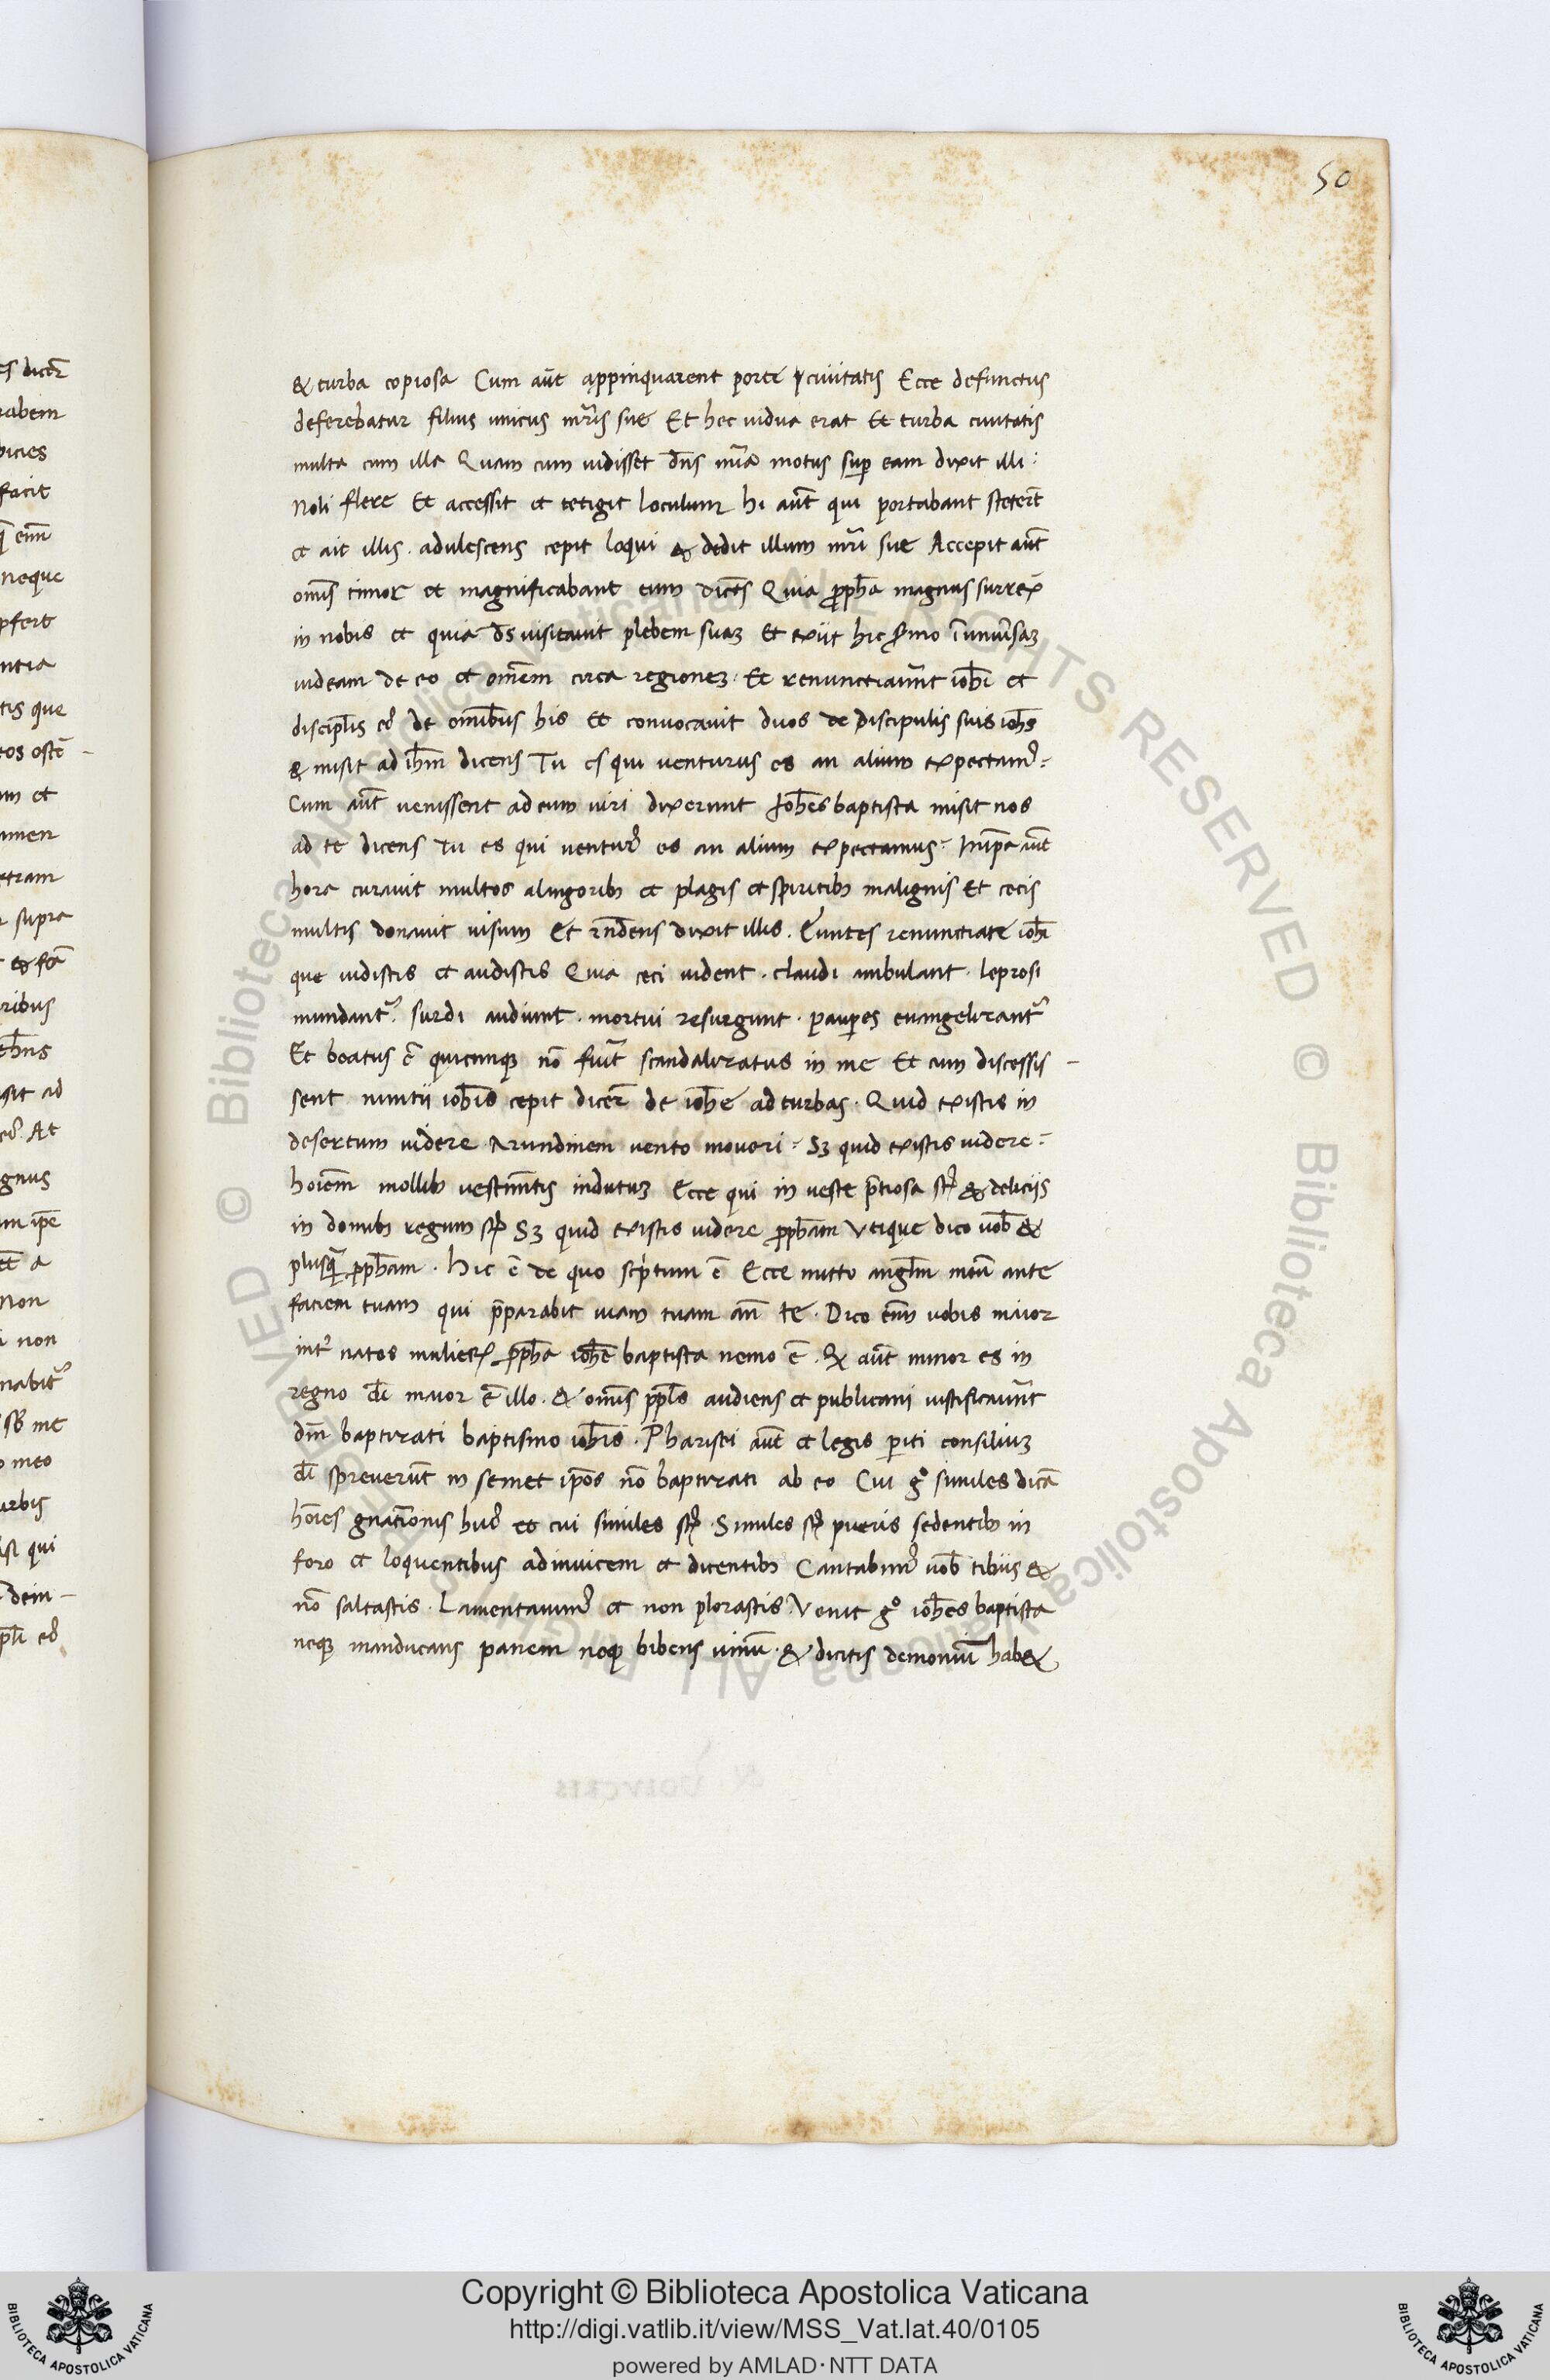 50
& turba copiosa Cum aūt appinquarent porte civitatis Ecce defunctus
deferebatur filius unicus mr̄is sue Et hec vidua erat Et turba civitatis
multa cum illa Quam cum vidisset dn̄s mīa motus sup eam dixit illi:
Noli flere Et accessit et tetigit loculum hi aūt qui portabant steterūt
et ait illis. adulescens cepit loqui & dedit illum mr̄i sue Accepit aūt
om̄s timor et magnificabant eum dicēs Quia ꝓph̄a magnus surrex̄
in nobis et quia ds̄ visitavit plebem suaꝫ Et exiit hic s̄mo ī univ̄saꝫ
iudeam de eo et om̄em circa regioneꝫ. Et renunctiaver̄nt ioh̄i et
discipl̄is eꝰ de omībus his Et convocavit duos de discipulis suis ioh̄s
& misit ad ih̄m dicens Tu es qui venturus es an alium expectamꝰ:
Cum aūt venissent ad eum viri dixerunt Joh̄es baptista misit nos
ad te dicens Tu es qui venturꝰ es an alium expectamus: In ip̄a aūt
hora curavit multos a langoribꝫ et plagis et spiritibꝫ malignis Et cecis
multis donavit visum Et rn̄dens dixit illis. Euntes renunctiate ioh̄i
que vidistis et audistis Quia ceci vident. claudi ambulant. leprosi
mundant᷑. surdi audiunt. mortui resurgunt. pauꝑes evangelizant᷑
Et beatus ē quicunqꝫ nō fu̅it scandalizatus in me Et cum discessis-
sent nuntii ioh̄is cepit dicer̄ de ioh̄e ad turbas. Quid existis in
desertum videre Arundinem vento moveri: Sꝫ quid existis videre:
hoiēm mollibꝫ vestimn̄tis indutuꝫ Ecce qui in veste p̄tiosa st̄ & deliciis
in domibꝫ regum st̄ Sꝫ quid existis videre ꝓph̄am Vtique dico vob̄ &
plusq̄ ꝓph̄am. Hic ē de quo scr̄ptum ē Ecce mitto angl̄m meū ante
faciem tuam qui p̄parabit viam tuam an̄ te. Dico em̄ vobis maior
int᷑ natos mulieꝝ ꝓph̄a ioh̄e baptista nemo ē. Q̄ aūt minor es in
regno dī maior ē illo. & om̄s ppl̄s audiens et publicani iustificaver̄nt
dm̄ baptizati baptismo ioh̄is. Pharisei aūt et legis ꝑiti consiliuꝫ
dī spreverūt in semet ip̄os nō baptizati ab eo Cui gͦ similes dicā
hoīes gn̄ationis huiꝰ et cui similes st̄. Similes st̄ pueris sedentibꝫ in
foro et loquentibus adinvicem et dicentibꝫ Cantabimꝰ vob̄ tibiis &
nō saltastis. Lamentavimꝰ et non plorastis. Venit gͦ ioh̄es baptista
neqꝫ manducans panem neqꝫ bibens vinū. & dicitis demoniū hab&
Copyright © Biblioteca Apostolica Vaticana
http://digi.vatlib.it/view/MSS_Vat.lat.40/0105
powered by AMLAD·NTT DATA
BIBLIOTECA APOSTOLICA VATICANA
BIBLIOTECA APOSTOLICA VATICANA